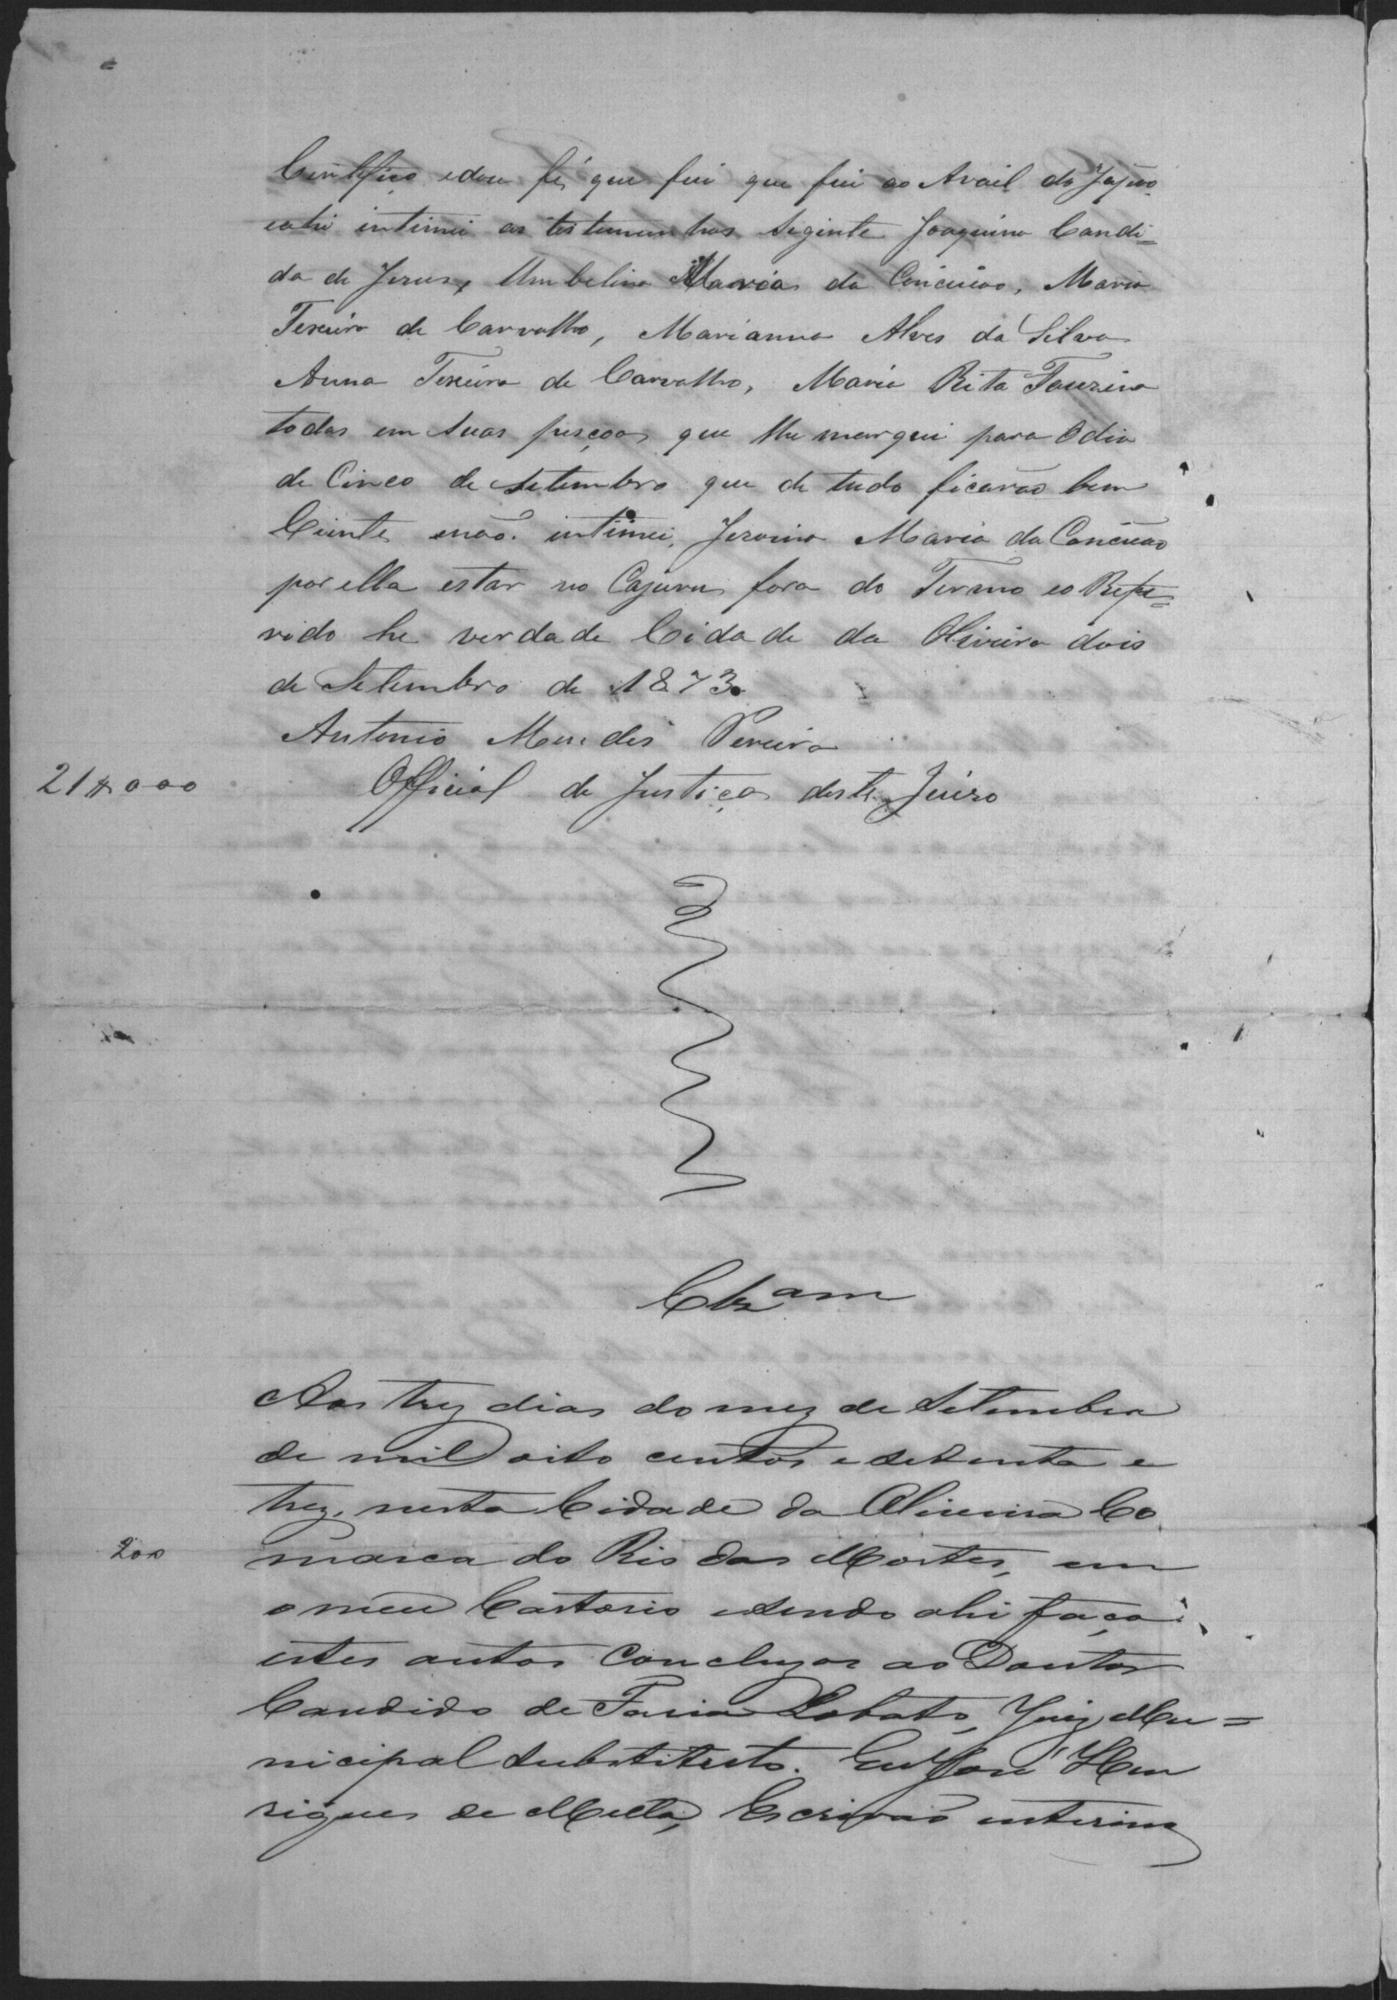 Certifico edou fé que fui que fui ao Arail do Japão
eahi intimei as testemunhas Siginte Joaquina Candi=
da de Jesus, Umbelina Maria da Conceicão, Maria
Texeira de Carvalho, Marianna Alves da Silva
Anna Texeira de Carvalho, Maria Rita
todas em suas peçoas que lhe marquei para o dia
de Cinco de Setembro que de tudo ficarão bem
Ciente enão intimei, Jeroina Maria da Conceicão
por ella estar no Cajuru fora do Termo eo Refe=
rido he verdade Cidade da Oliveira dois
de Setembro de 1873.
Antonio Mendes Pereira
21$000
Official de Justiça deste Juizo
Clzam
Aos trez dias do mez de Setembro
de mil oito centos e setenta e
trez, nesta Cidade da Oliveira Co
200
marca do Rio das Mortes, em
o meu Cartorio e sendo ahi faço
estes autos concluzos ao Doutor
Candido de Faria Lobato, Juiz Mu=
nicipal substituto. Eu José Hen
riques de Mello, Escrivão interino